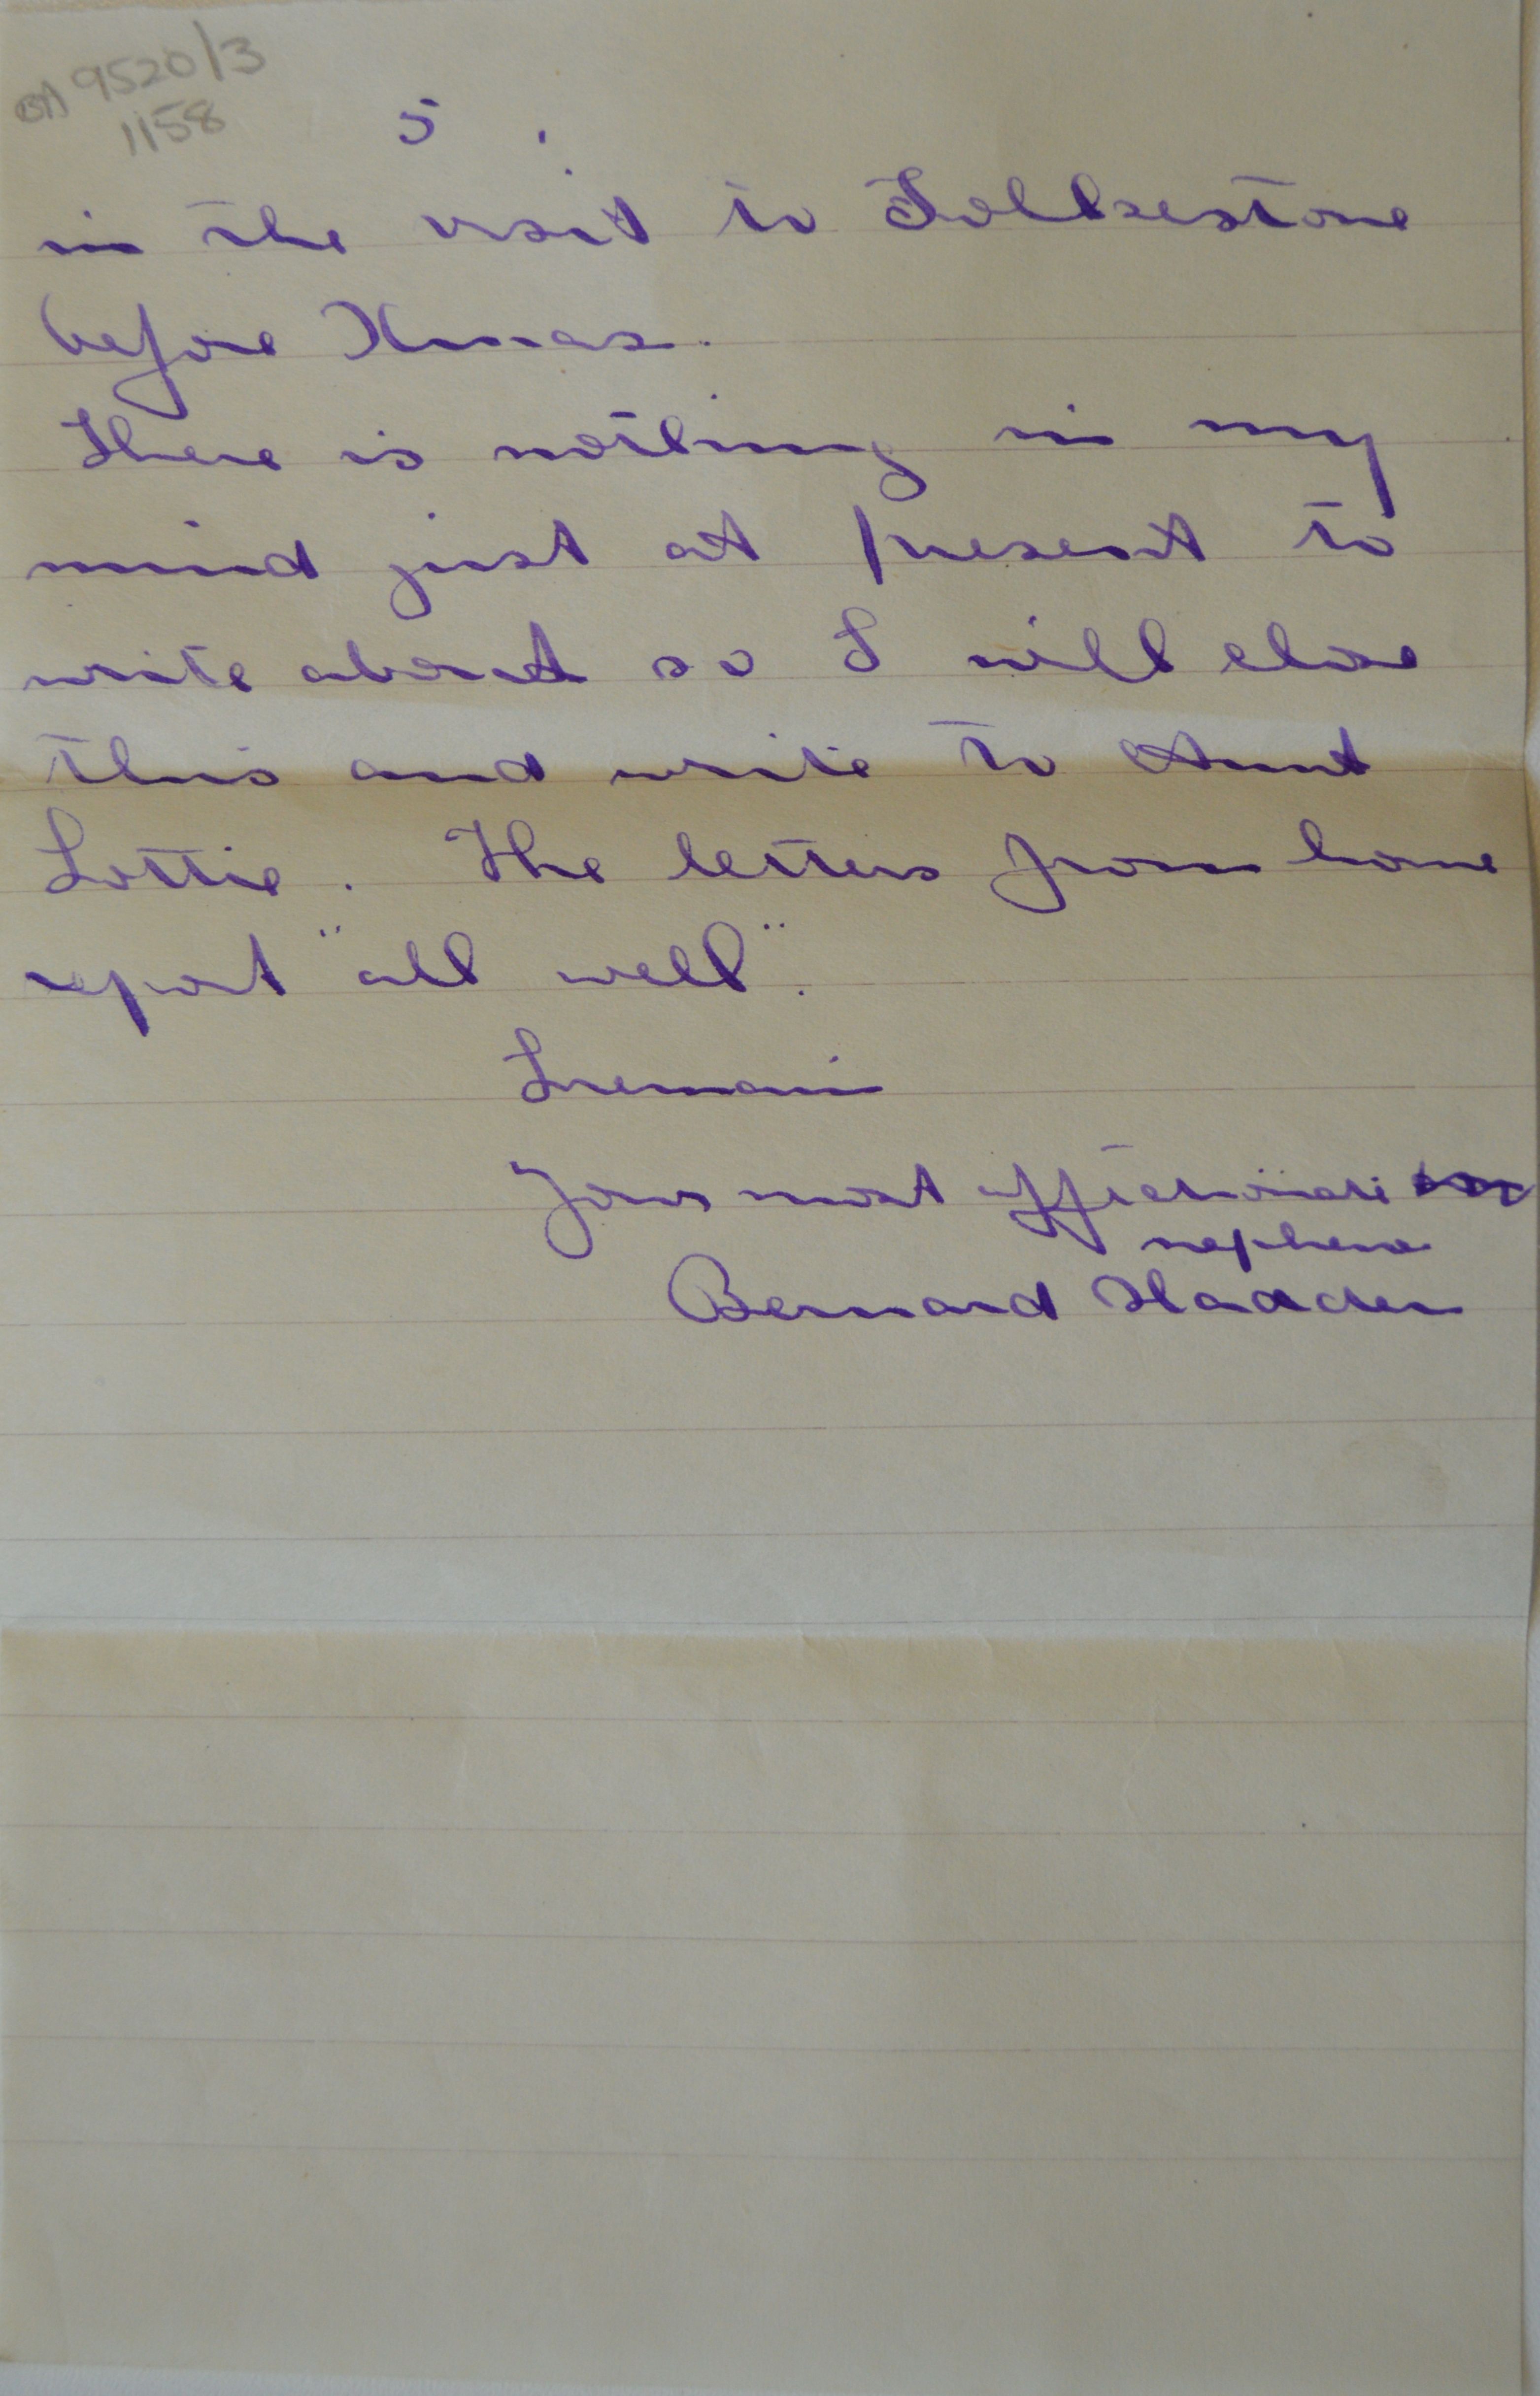 BA 9520/3
1158
5
in the visit to Folkestone
before Xmas.
There is nothing in my
mind just at present to
write about so I will close
this and write to Aunt
Lottie. The letters from home
report "all well".
I remain
Yours most affectionate
nephew
Bernard